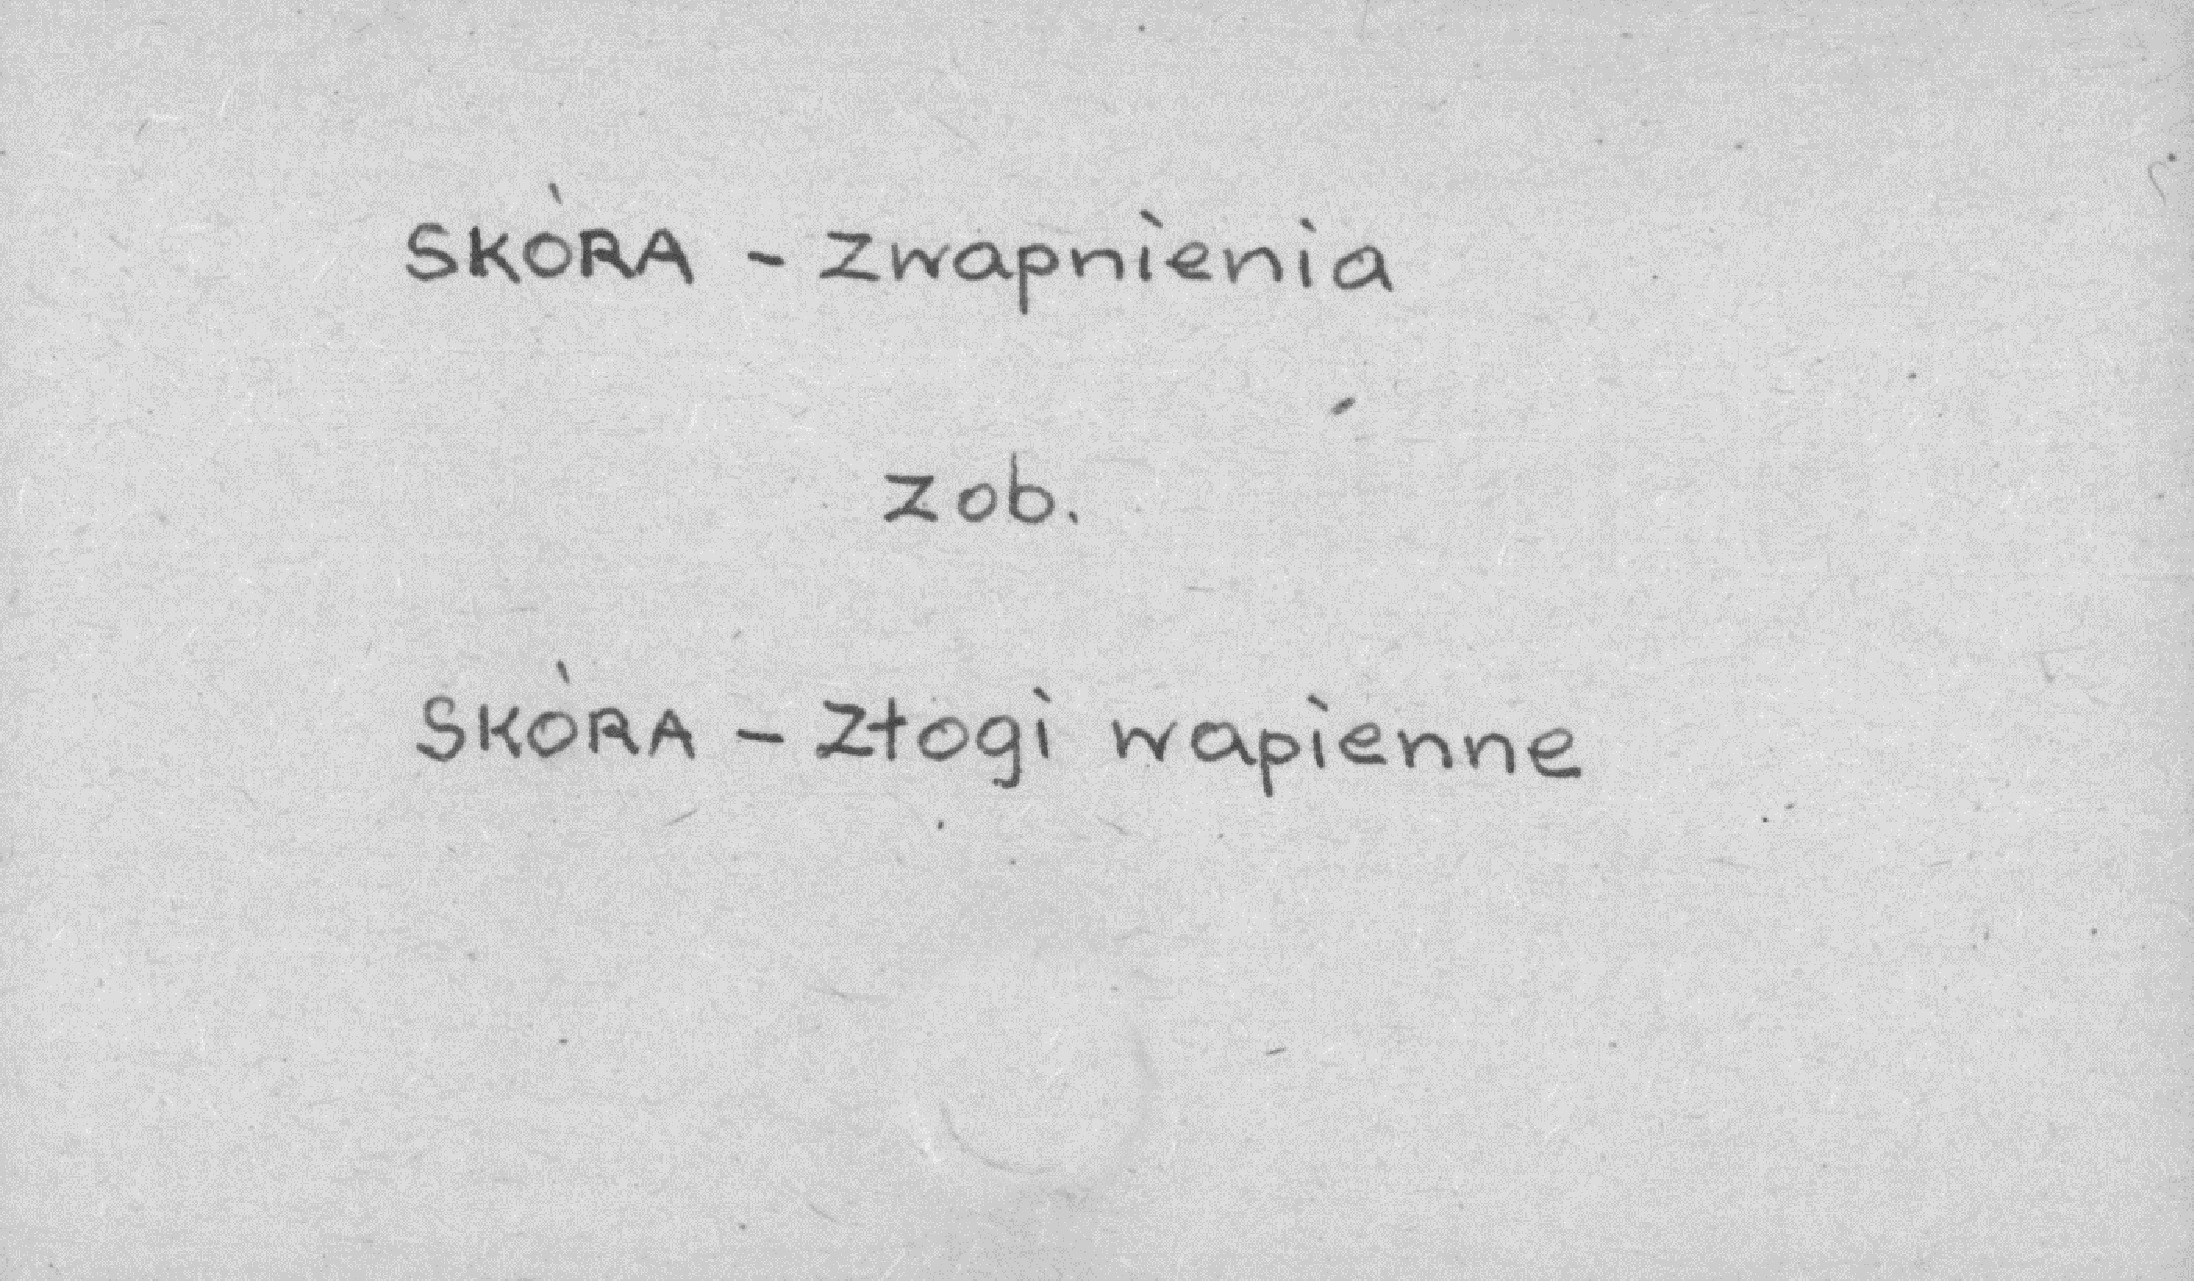 SKÓRA - zwapnienia
zob.
SKÓRA - złogi wapienne